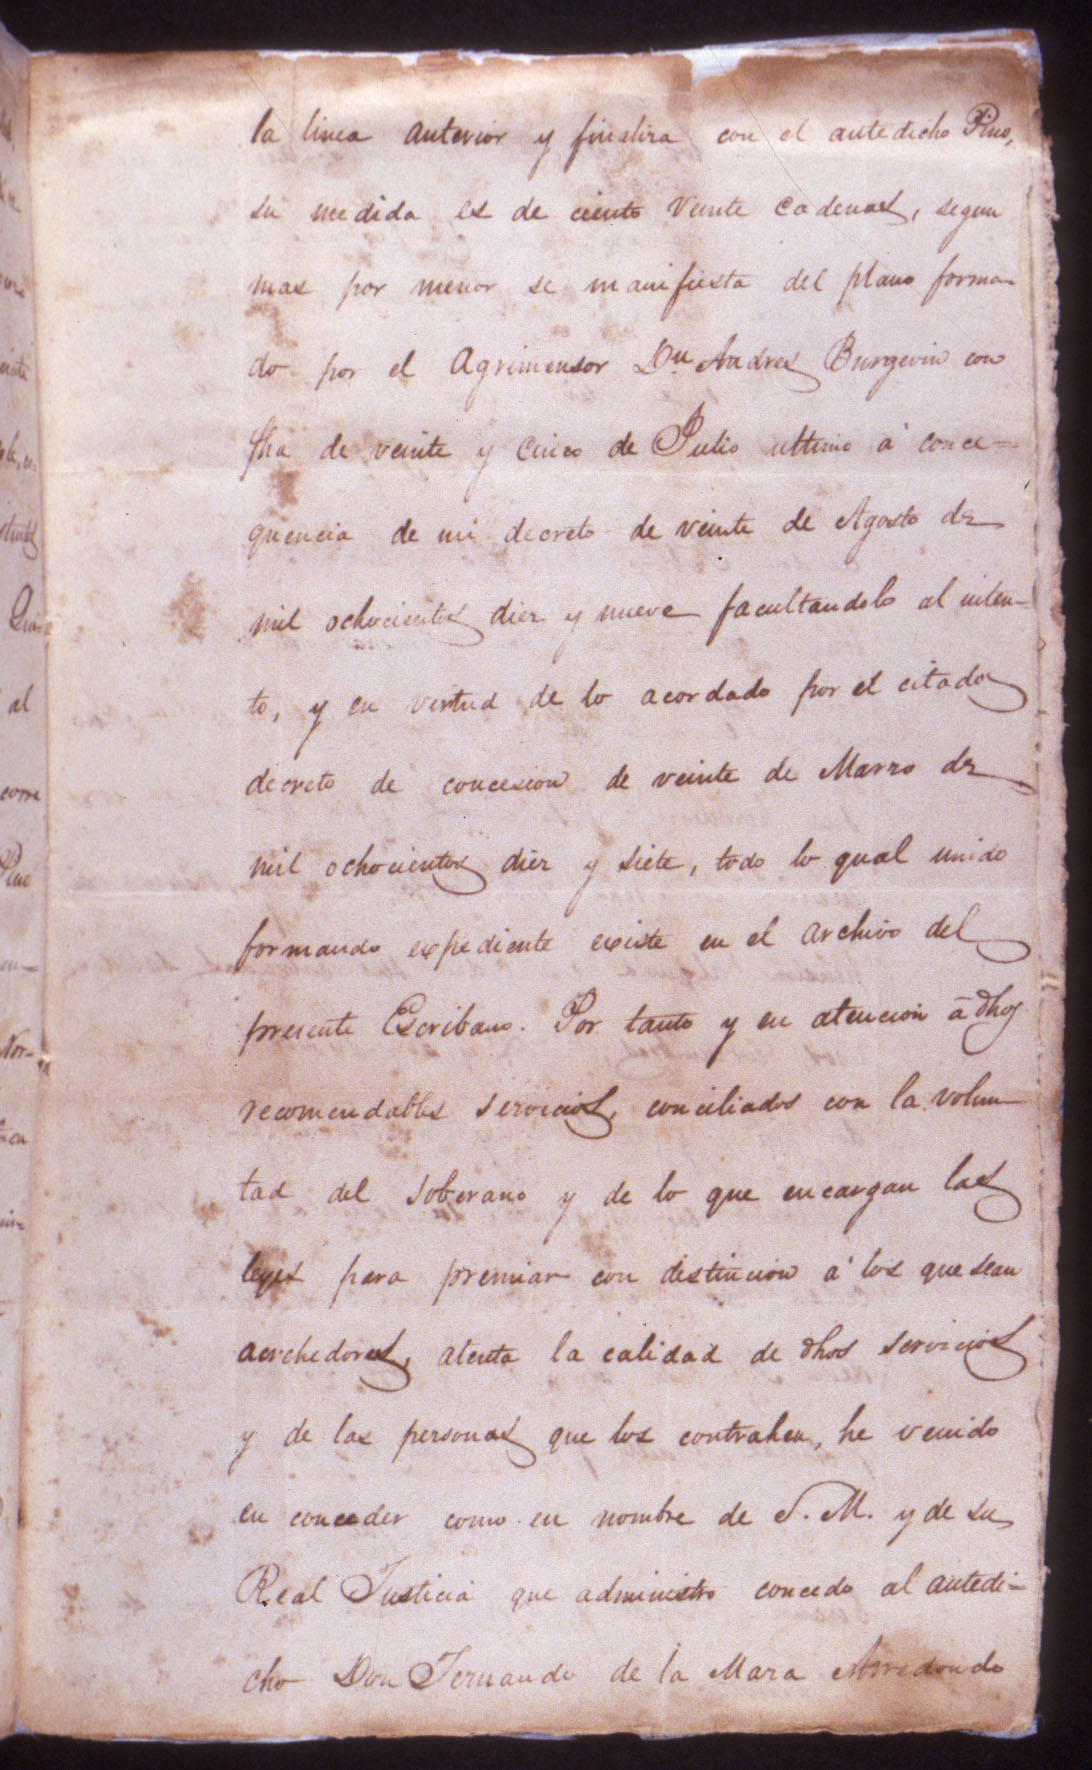 la linea anterior y finaliza con el antedicho Pino,
su medida es de ciento veinte cadenas, segun
mas por menor se manifiesta del plano forma-
do por el Agrimensor Dn. Andres Burgevin con
fha de veinte y cinco de Julio ultimo á conce-
quencia de mi decreto de veinte de Agosto de
mil ochocientos diez y nueve facultandolo al inten-
to, y en virtud de lo acordado por el citado
decreto de concesion de veinte de Marzo de
mil ochocientos diez y siete, todo lo qual unido
formando expediente existe en el archivo del
presente Escribano. Por tanto y en atencion á dhos
recomendables servicios, conciliados con la volun-
tad del soberano y de lo que encargan las
leyes para premiar con distincion á los que sean
acrehedores, atenta la calidad de dhos servicios
y de las personas que los contrahen, he venido
en conceder como en nombre de S. M. y de su
Real Justicia que administro concedo al antedi-
cho Don Fernando de la Maza Arredondo
al
corre
Pino